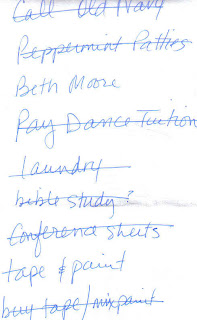 Call Old Navy
Peppermint Patties
Beth Moore
Pay Dance Tuition
laundry
bible study?
Conference sheets
tape & paint
buy tape/mix paint